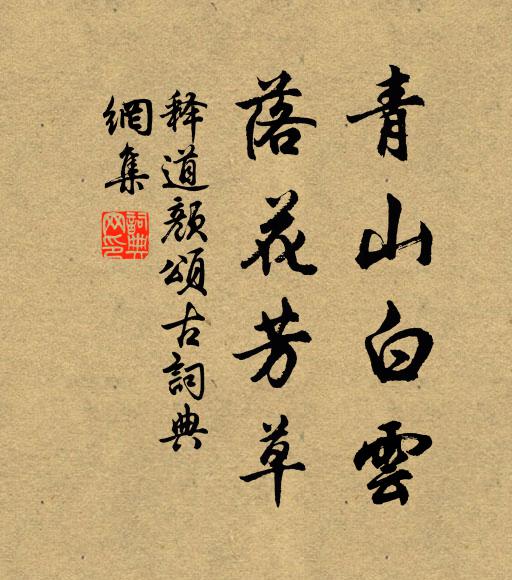 青山白雲
落花芳草
释道顏頌古詞典
網集
詞典
网印